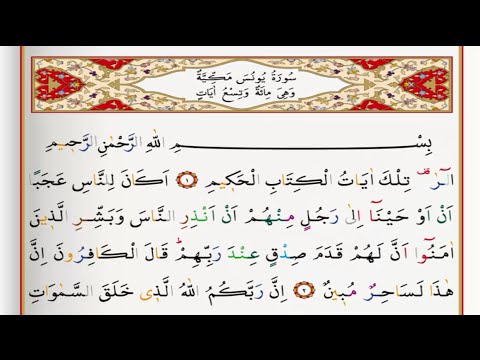 سُورَةُ يُونُسَ مَكِّيَّةٌ
وَهِيَ مِائَةٌ وَتِسْعُ اٰيَاتٍ
بِسْمِ اللهِ الرَّحْمٰنِ الرَّحٖيمِ
الٓرٰ۠ تِلْكَ اٰيَاتُ الْكِتَابِ الْحَكٖيمِ ﴿١﴾ اَكَانَ لِلنَّاسِ عَجَبًا
اَنْ اَوْحَيْنَٓا اِلٰى رَجُلٍ مِنْهُمْ اَنْ اَنْذِرِ النَّاسَ وَبَشِّرِ الَّذٖينَ
اٰمَنُٓوا اَنَّ لَهُمْ قَدَمَ صِدْقٍ عِنْدَ رَبِّهِمْؕ قَالَ الْكَافِرُونَ اِنَّ
هٰذَا لَسَاحِرٌ مُبٖينٌ ﴿٢﴾ اِنَّ رَبَّكُمُ اللهُ الَّذٖى خَلَقَ السَّمٰوَاتِ